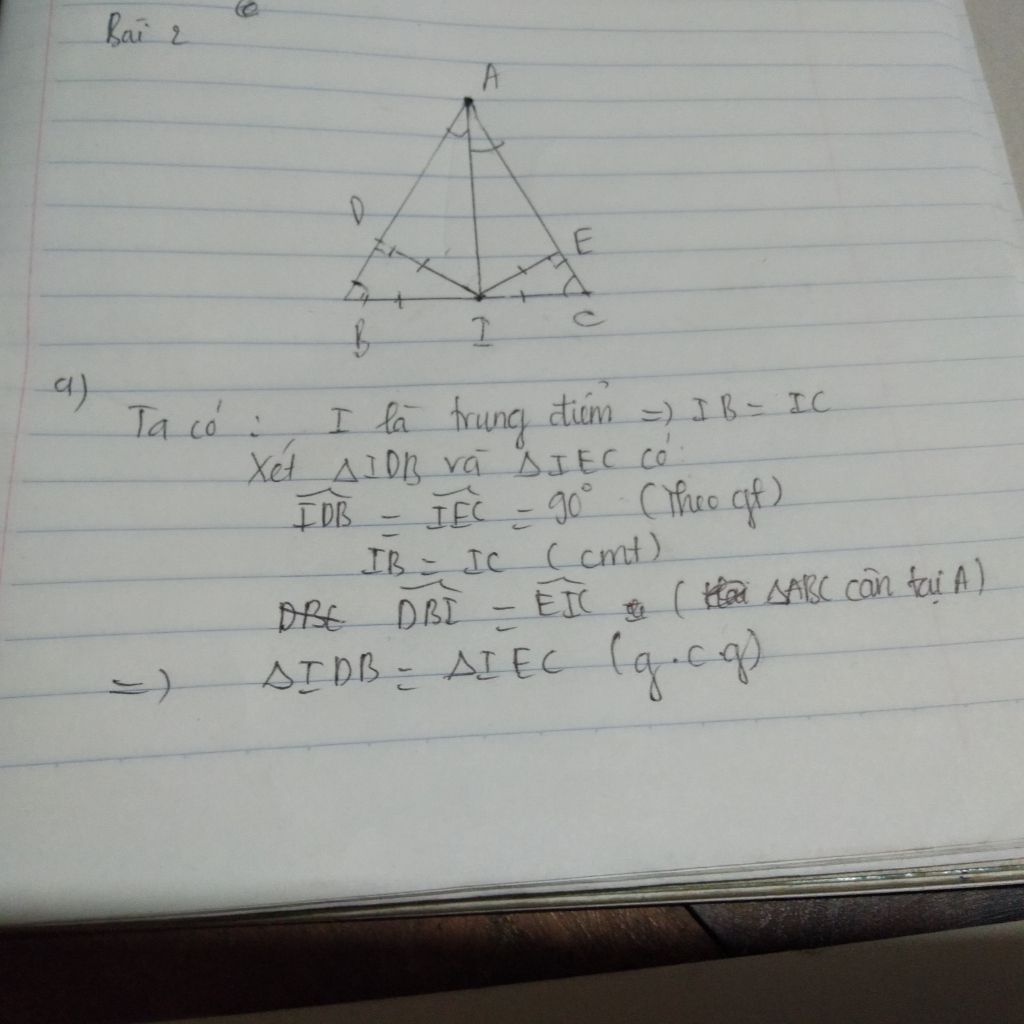 Bài 2
A
D
E
B
I
C
a)
Ta có : I là trung điểm => IB = IC
Xét ΔIDB và ΔIEC có:
IDB = IEC = 90° (theo gt)
IB = IC (cmt)
DBC DBI = EIC ( ΔABC cân tại A)
=> ΔIDB = ΔIEC (g.c.g)